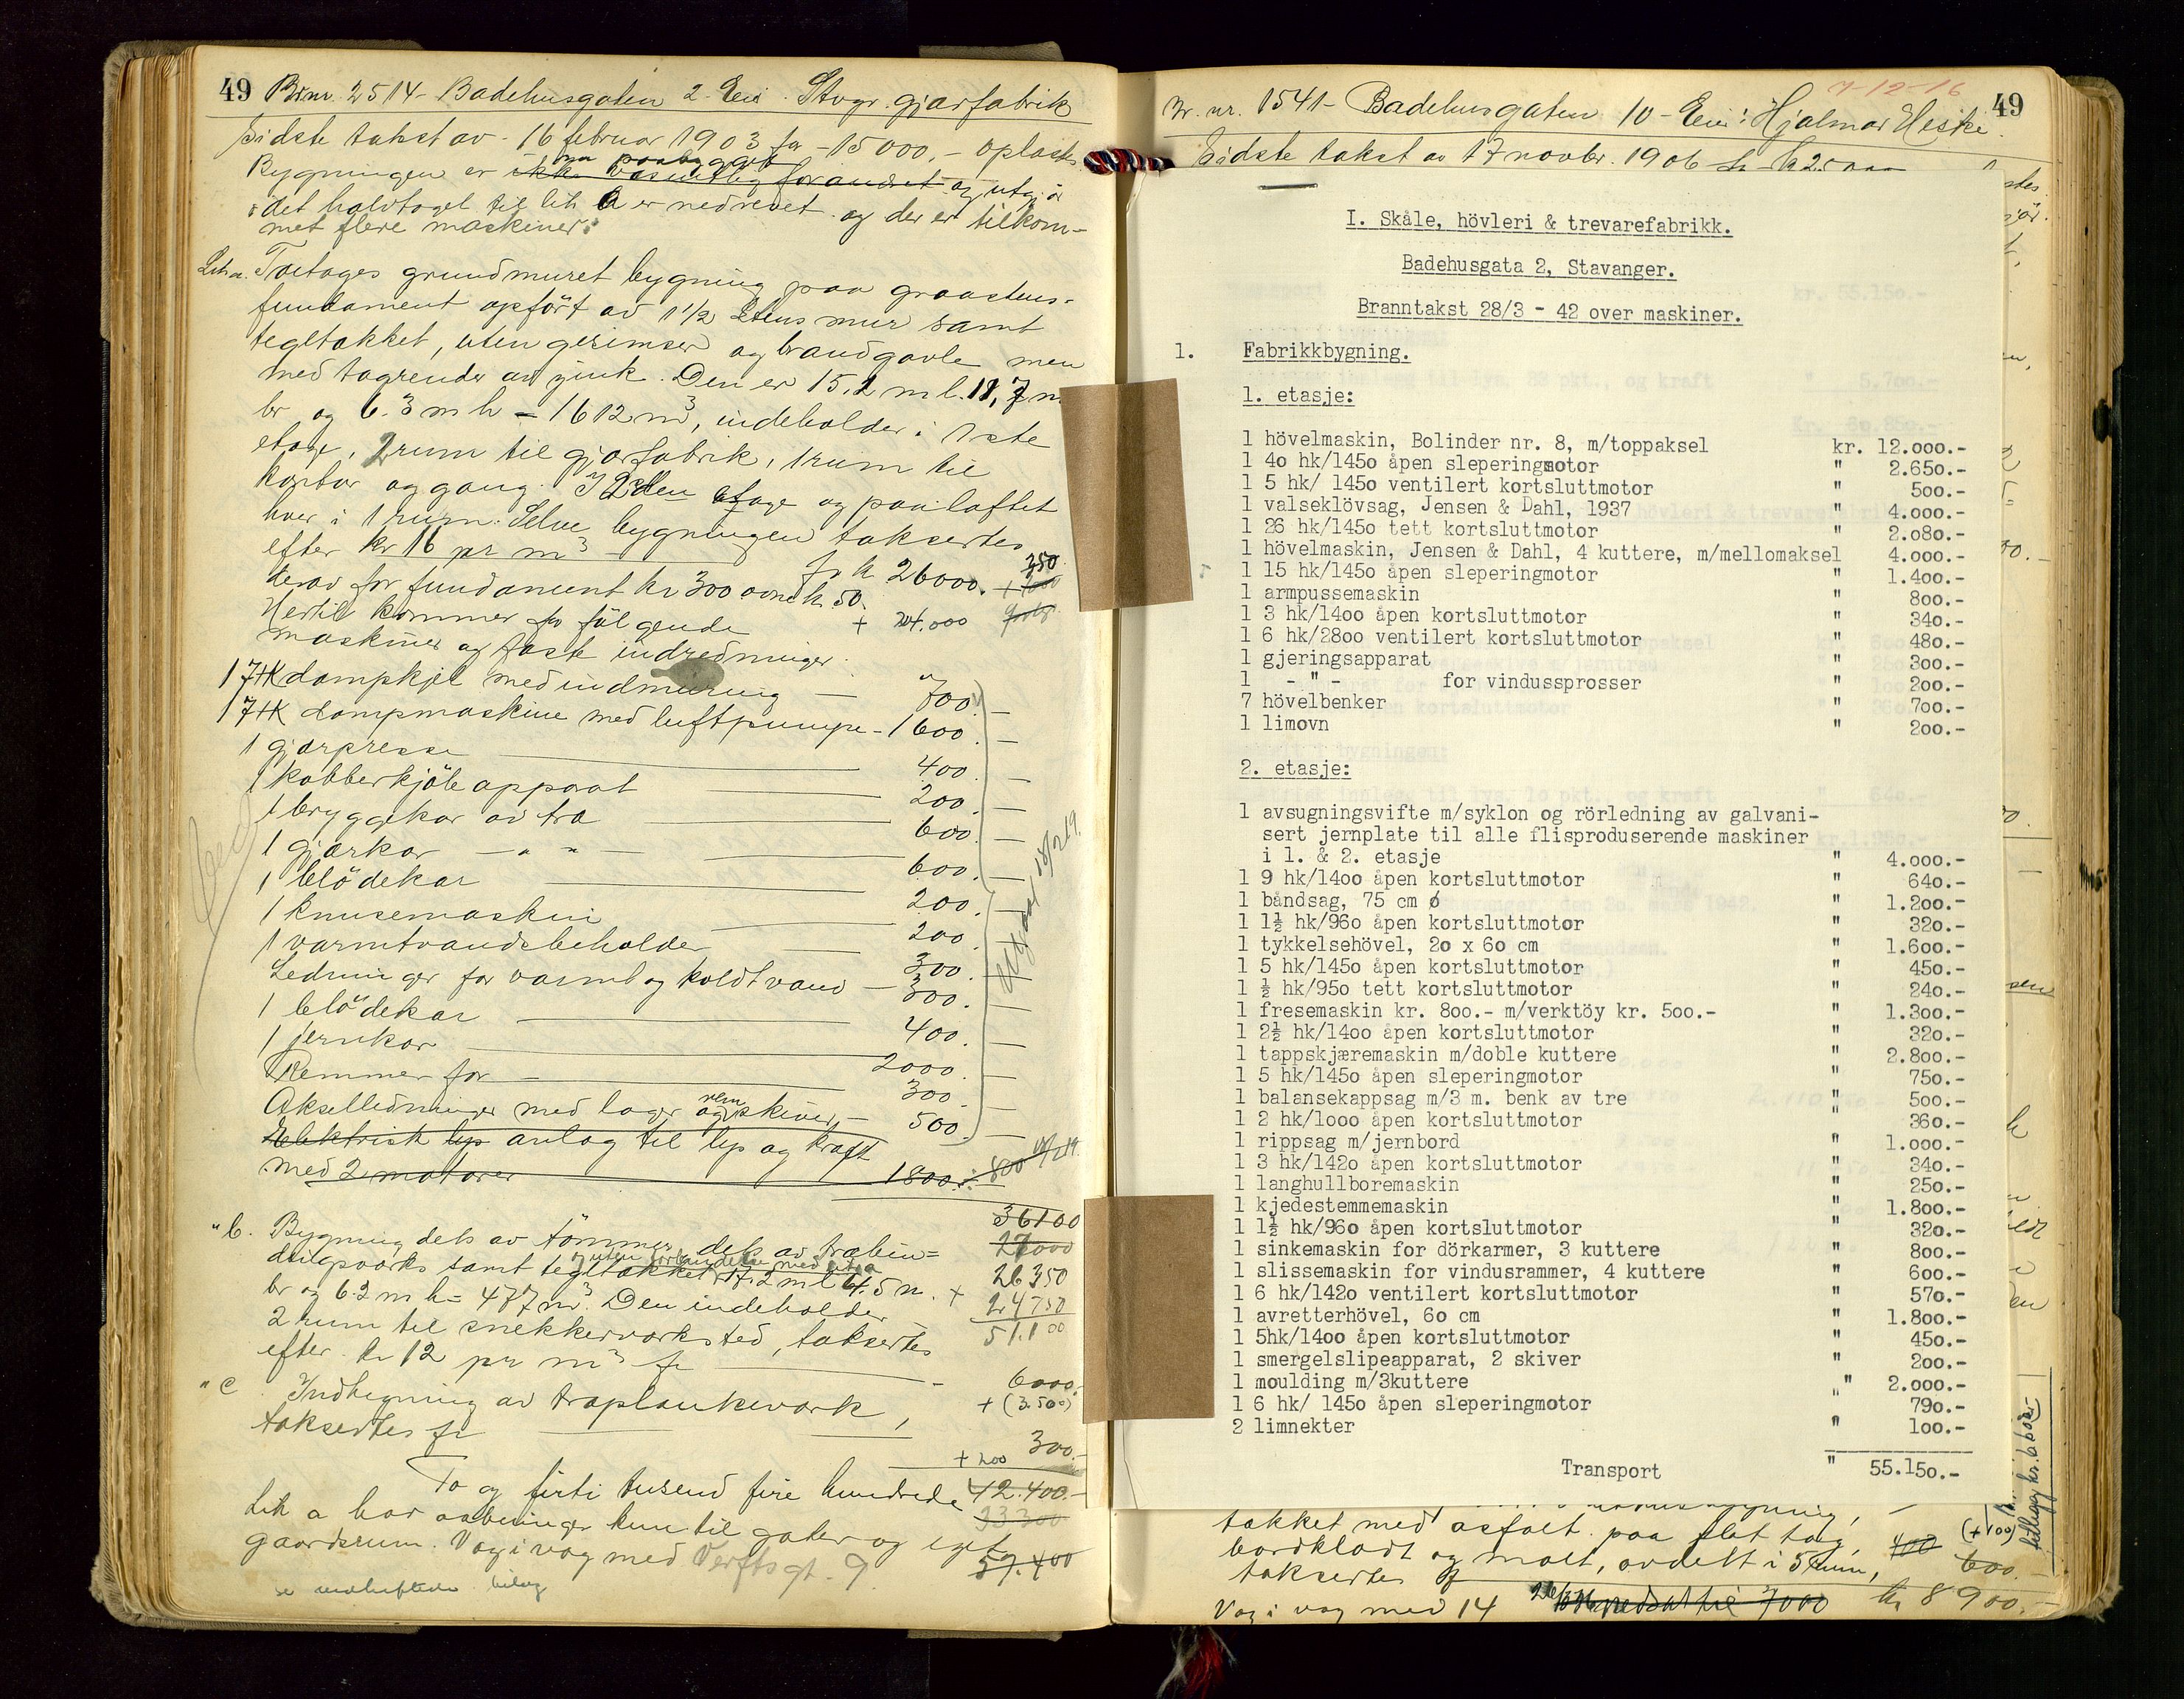 49 Br.nr. 2514 - Badehusgaten 2. Eier: Stvgr. gjærfabrik
Sidste takst av 16 februar 1903 for - 15000.- oplæstes
Bygningen er ikke væsentlig forandret og utgjør
det halvtaget til lit. a er nedrevet og der er tilkom-
met flere maskiner.
Lit a. Toetages grundmuret bygning paa graastens-
fundament opført av 1 1/2 stens mur samt
tegltækket, uten gesimser og brandgavle men
med tagrender av zink. Den er 15,2 m l. 11,7 m
br og 6.3 m h = 1612 m3, indeholder i 1ste
etage, 2 rum til gjærfabrik, 1 rum til
kontor og gang. I 2den etage og paa loftet
hver i 1 rum. Selve bygningen takseres
efter kr 16 pr m3 for kr 26000. 350
derav for fundament kr 300
Hertil kommer for følgende + 24.000
maskiner og faste indredninger.
1 7HK dampkjel med indmuring 700.
1 7HK dampmaskine med luftpumpe - 1600.
1 gjærpresse 400.
1 kobberkjøleapparat 200.
1 bryggekar av træ 600.
1 gjærkar - " " - 600.
1 blødekar 200.
1 knusemaskin 200.
1 varmtvandsbeholder 300.
Ledninger for varmt og koldt vand 300.
1 blødekar 400.
1 jernkar 2000.
Remmer for 300.
Akselledninger med lager og remskiver 500.
Elektrisk lys anlæg til lys og kraft
med 2 motorer 1800.- 800
36100
27000
"b. Bygning dels av tømmer dels av træbin-
dingsværks samt tegltækket 17.2 m l 4.5 m. 26350
br og 6.2 m h = 477 m3. Den indeholder + 24750
2 rum til snekkerværksted, takseres 51.100
efter kr 12 pr m3 for 6000.-
+ (3.500)
"c. Indhegning av træplankeværk,
takseres for 300.-
+ 200
To og firti tusend fire hundrede 42.400.-
Lit a har aabninger kun til gaten og eget 33300
gaardsrum. Væg i væg med Verftsgt. 9. 57.400
se vedheftede bilag
Br. nr. 1541 - Badehusgaten 10 - Eier: Hjalmar Heske. 49
7-12-16
Sidste takst av 17 novbr. 1906
I. Skåle, hövleri & trevarefabrikk.
Badehusgata 2, Stavanger.
Branntakst 28/3 - 42 over maskiner.
1. Fabrikkbygning.
1. etasje:
1 hövelmaskin, Bolinder nr. 8, m/toppaksel kr. 12.000.-
1 40 hk/1450 åpen sleperingmotor " 2.650.-
1 5 hk/ 1450 ventilert kortsluttmotor " 500.-
1 valseklövsag, Jensen & Dahl, 1937 " 4.000.-
1 26 hk/1450 tett kortsluttmotor " 2.080.-
1 hövelmaskin, Jensen & Dahl, 4 kuttere, m/mellomaksel 4.000.-
1 15 hk/1450 åpen sleperingmotor " 1.400.-
1 armpussemaskin " 800.-
1 3 hk/1400 åpen kortsluttmotor " 340.-
1 6 hk/2800 ventilert kortsluttmotor " 480.-
1 gjeringsapparat " 300.-
1 - " - for vindussprosser " 200.-
7 hövelbenker " 700.-
1 limovn " 200.-
2. etasje:
1 avsugningsvifte m/syklon og rörledning av galvani-
sert jernplate til alle flisproduserende maskiner
i 1. & 2. etasje " 4.000.-
1 9 hk/1400 åpen kortsluttmotor " 640.-
1 båndsag, 75 cm ø " 1.200.-
1 1½ hk/960 åpen kortsluttmotor " 320.-
1 tykkelsehövel, 20 x 60 cm " 1.600.-
1 5 hk/1450 åpen kortsluttmotor " 450.-
1 ½ hk/950 tett kortsluttmotor " 240.-
1 fresemaskin kr. 800.- m/verktöy kr. 500.- " 1.300.-
1 2½ hk/1400 åpen kortsluttmotor " 320.-
1 tappskjæremaskin m/doble kuttere " 2.800.-
1 5 hk/1450 åpen sleperingmotor " 750.-
1 balansekappsag m/3 m. benk av tre " 500.-
1 2 hk/1000 åpen kortsluttmotor " 360.-
1 rippsag m/jernbord " 1.000.-
1 3 hk/1420 åpen kortsluttmotor " 340.-
1 langhullboremaskin " 250.-
1 kjedestemmemaskin " 1.800.-
1 1½ hk/960 åpen kortsluttmotor " 320.-
1 sinkemaskin for dörkarmer, 3 kuttere " 800.-
1 slissemaskin for vindusrammer, 4 kuttere " 600.-
1 6 hk/1420 ventilert kortsluttmotor " 570.-
1 avretterhövel, 60 cm " 1.800.-
1 5hk/1400 åpen kortsluttmotor " 450.-
1 smergelslipeapparat, 2 skiver " 200.-
1 moulding m/3kuttere " 2.000.-
1 6 hk/ 1450 åpen sleperingmotor " 790.-
2 limnekter " 100.-
Transport " 55.150.-
tækket med asfalt paa flat tag, (+100)
bordklædt og malt, avdelt i 5 rum, 400 600.-
takseres
Væg i væg med 14 kr 8900.-